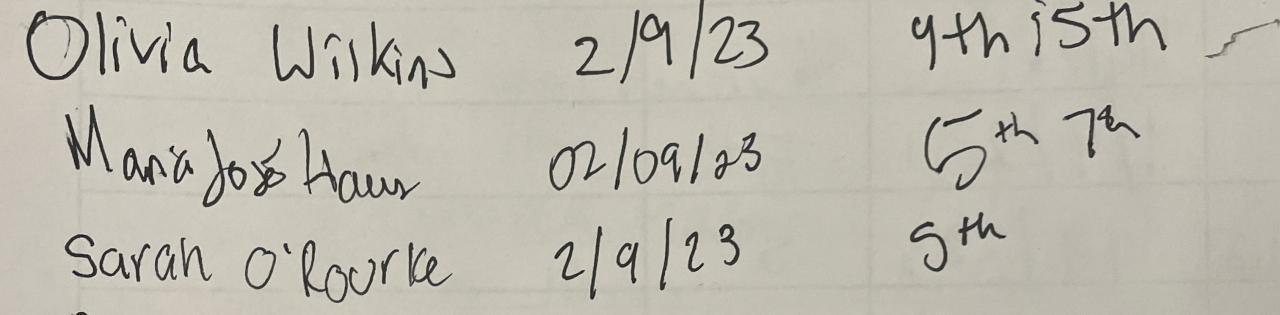 Olivia Wilkins 2/9/23 9th i 5th
Maria José 02/09/23 5th 7th
Sarah O'Rourke 2/9/23 5th